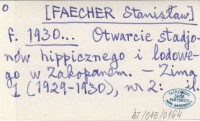 o [FAECHER Stanisław]
f. 1930... Otwarcie stadjo-
nów hippicznego i lodowe-
go w Zakopanem. — Zima
1 (1929-1930), nr 2: il.
bf/010/0164